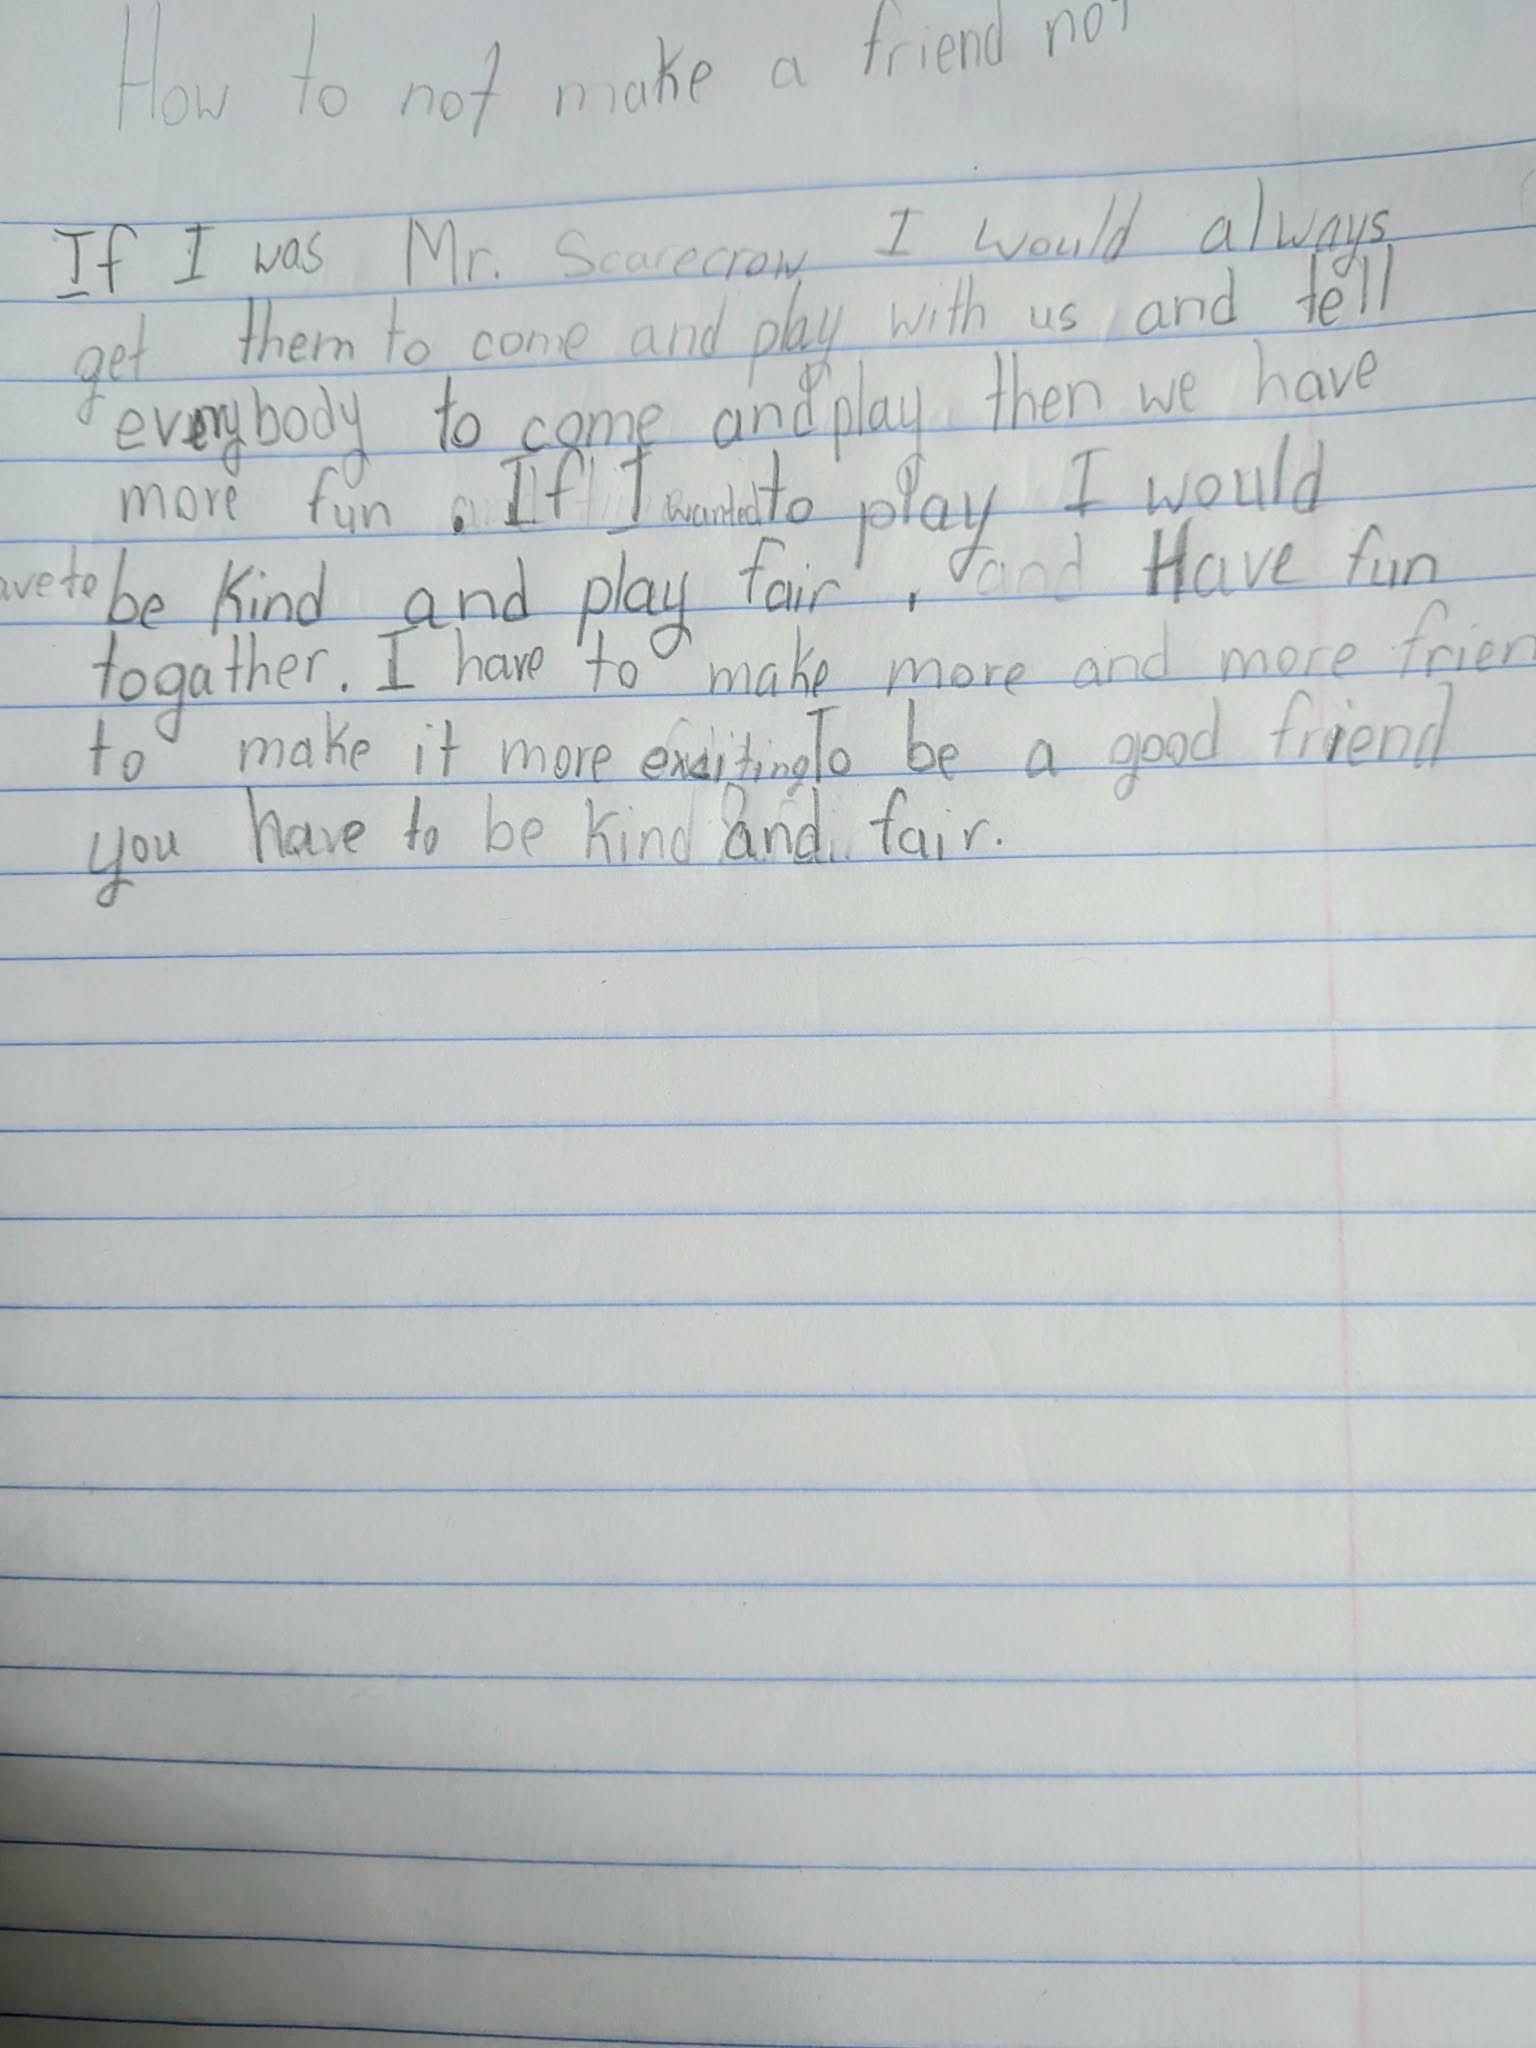 How to not make a friend not
If I was Mr. Scarecrow I would always
get them to come and play with us and tell
everybody to come and play then we have
more fun . If I wanted to play I would
ave to be kind and play fair , and Have fun
togather. I have to make more and more frien
to make it more exciting To be a good friend
you have to be kind and fair.